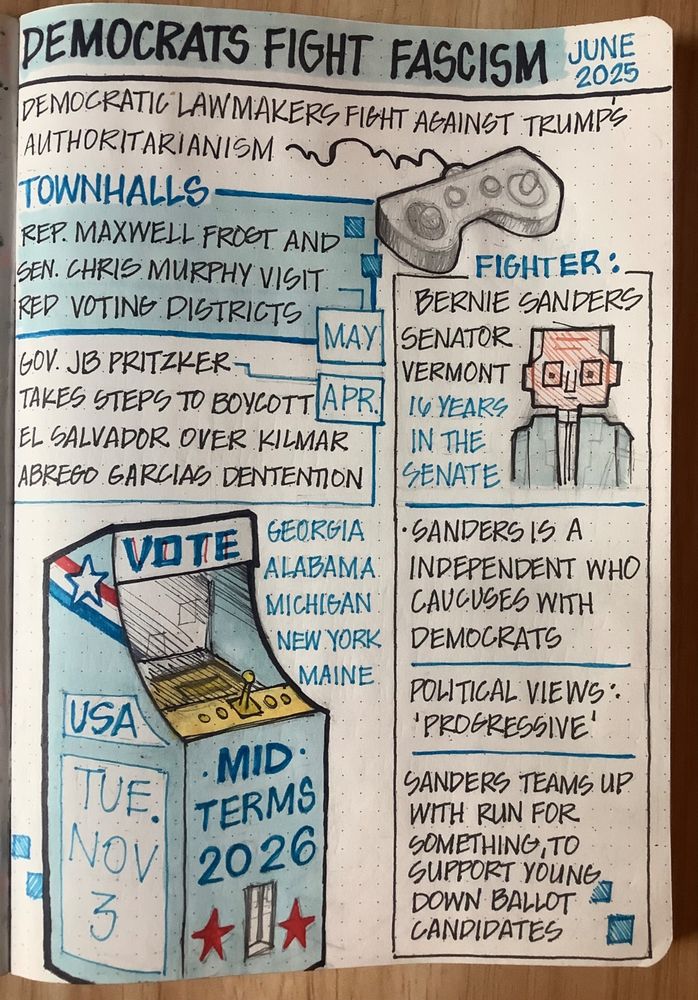 DEMOCRATS FIGHT FASCISM
JUNE
2025
DEMOCRATIC LAWMAKERS FIGHT AGAINST TRUMP'S
AUTHORITARIANISM
TOWNHALLS
REP. MAXWELL FROST AND
SEN. CHRIS MURPHY VISIT
RED VOTING DISTRICTS
MAY
GOV. JB PRITZKER
TAKES STEPS TO BOYCOTT
APR.
EL SALVADOR OVER KILMAR
ABREGO GARCIAS DENTENTION
FIGHTER:
BERNIE SANDERS
SENATOR
VERMONT
16 YEARS
IN THE
SENATE
·SANDERS IS A
INDEPENDENT WHO
CAUCUSES WITH
DEMOCRATS
POLITICAL VIEWS:
'PROGRESSIVE'
SANDERS TEAMS UP
WITH RUN FOR
SOMETHING, TO
SUPPORT YOUNG
DOWN BALLOT
CANDIDATES
VOTE
GEORGIA
ALABAMA
MICHIGAN
NEW YORK
MAINE
USA
TUE.
NOV
3
·MID·
TERMS
2026